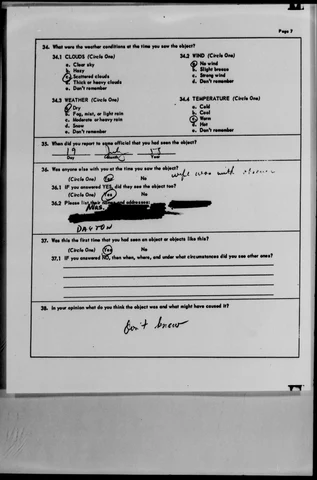 Page 7
34. What were the weather conditions at the time you saw the object?
34.1 CLOUDS (Circle One) 34.2 WIND (Circle One)
a. Clear sky a. No wind
b. Hazy b. Slight breeze
c. Scattered clouds c. Strong wind
d. Thick or heavy clouds d. Don't remember
e. Don't remember
34.3 WEATHER (Circle One) 34.4 TEMPERATURE (Circle One)
a. Dry a. Cold
b. Fog, mist, or light rain b. Cool
c. Moderate or heavy rain c. Warm
d. Snow d. Hot
e. Don't remember e. Don't remember
35. When did you report to some official that you had seen the object?
19 53
Day Month Year
36. Was anyone else with you at the time you saw the object?
(Circle One) Yes No wife was with
36.1 IF you answered YES, did they see the object too?
(Circle One) Yes No
36.2 Please list their names and addresses:
MRS.
DAYTON
37. Was this the first time that you had seen an object or objects like this?
(Circle One) Yes No
37.1 IF you answered NO, then when, where, and under what circumstances did you see other ones?
38. In your opinion what do you think the object was and what might have caused it?
Don't know